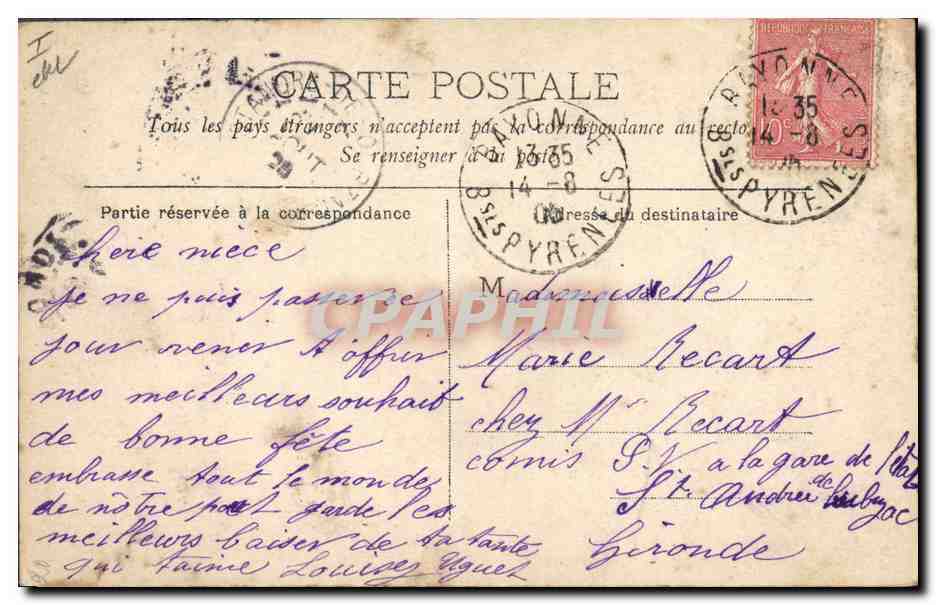 I
CARTE POSTALE
Tous les pays étrangers n'acceptent pas la correspondance au recto
Se renseigner à la poste
REPUBLIQUE FRANÇAISE
10c
BAYONNE
13 35
14 -8
Bses PYRENEES
BAYONNE
13 35
14 -8
05
Bses PYRENEES
AOUT
Partie réservée à la correspondance
Chère nièce
Je ne puis passer ce
jour venir t'offrir
mes meilleurs souhait
de bonne fête
embrasse tout le monde
de nôtre part garde les
meilleurs baiser de ta tante
qui t'aime Louise Uguet
Adresse du destinataire
Mademoiselle
Marie Recart
chez Mr Recart
comis P.V a la gare de l'état
St Andrée de Cubzac
Gironde
CPAPHIL